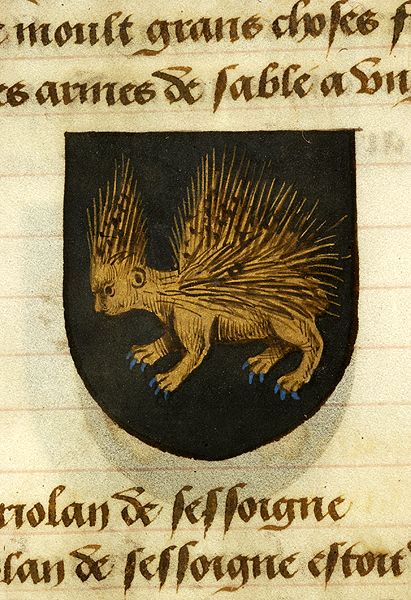 moult grans choses
es armes de sable a vn
riolan de sessoigne
lan de sessoigne estoit